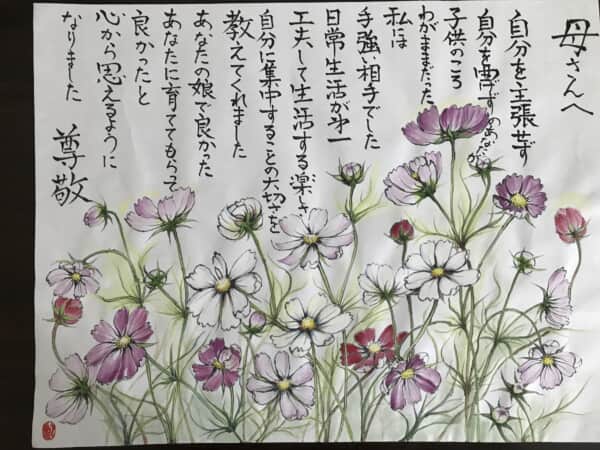 母さんへ
自分を主張せず
自分を曲げずのあなたが
子供のころ
わがままだった
私には
手強い相手でした
日常生活が第一
工夫して生活する楽しさ
自分に集中することの大切さを
教えてくれました
あなたの娘で良かった
あなたに育ててもらって
良かったと
心から思えるように
なりました
尊敬